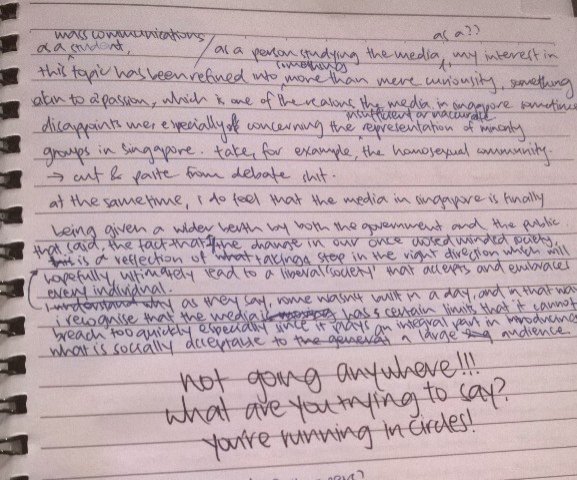 mass communications as a??
as a student, / as a person studying the media, my interest in
something
this topic has been refined into more than mere curiosity, something
akin to a passion, which is one of the reasons the media in singapore sometimes
insufficient or inaccurate
disappoints me, especially concerning the representation of minority
groups in singapore. take, for example, the homosexual community.
→ cut & paste from debate shit.
at the same time, i do feel that the media in singapore is finally
being given a wider berth by both the government and the public
that said, the fact that the change in our once closed minded society,
this is a reflection of what taking a step in the right direction which will
hopefully ultimately lead to a liberal society that accepts and embraces
every individual.
i understand why as they say, rome wasn't built in a day, and in that way
i recognise that the media has a certain limits that it cannot
breach too quickly especially since it plays an integral part in introducing
what is socially acceptable to the general a large audience
not going anywhere!!!
what are you trying to say?
you're running in circles!